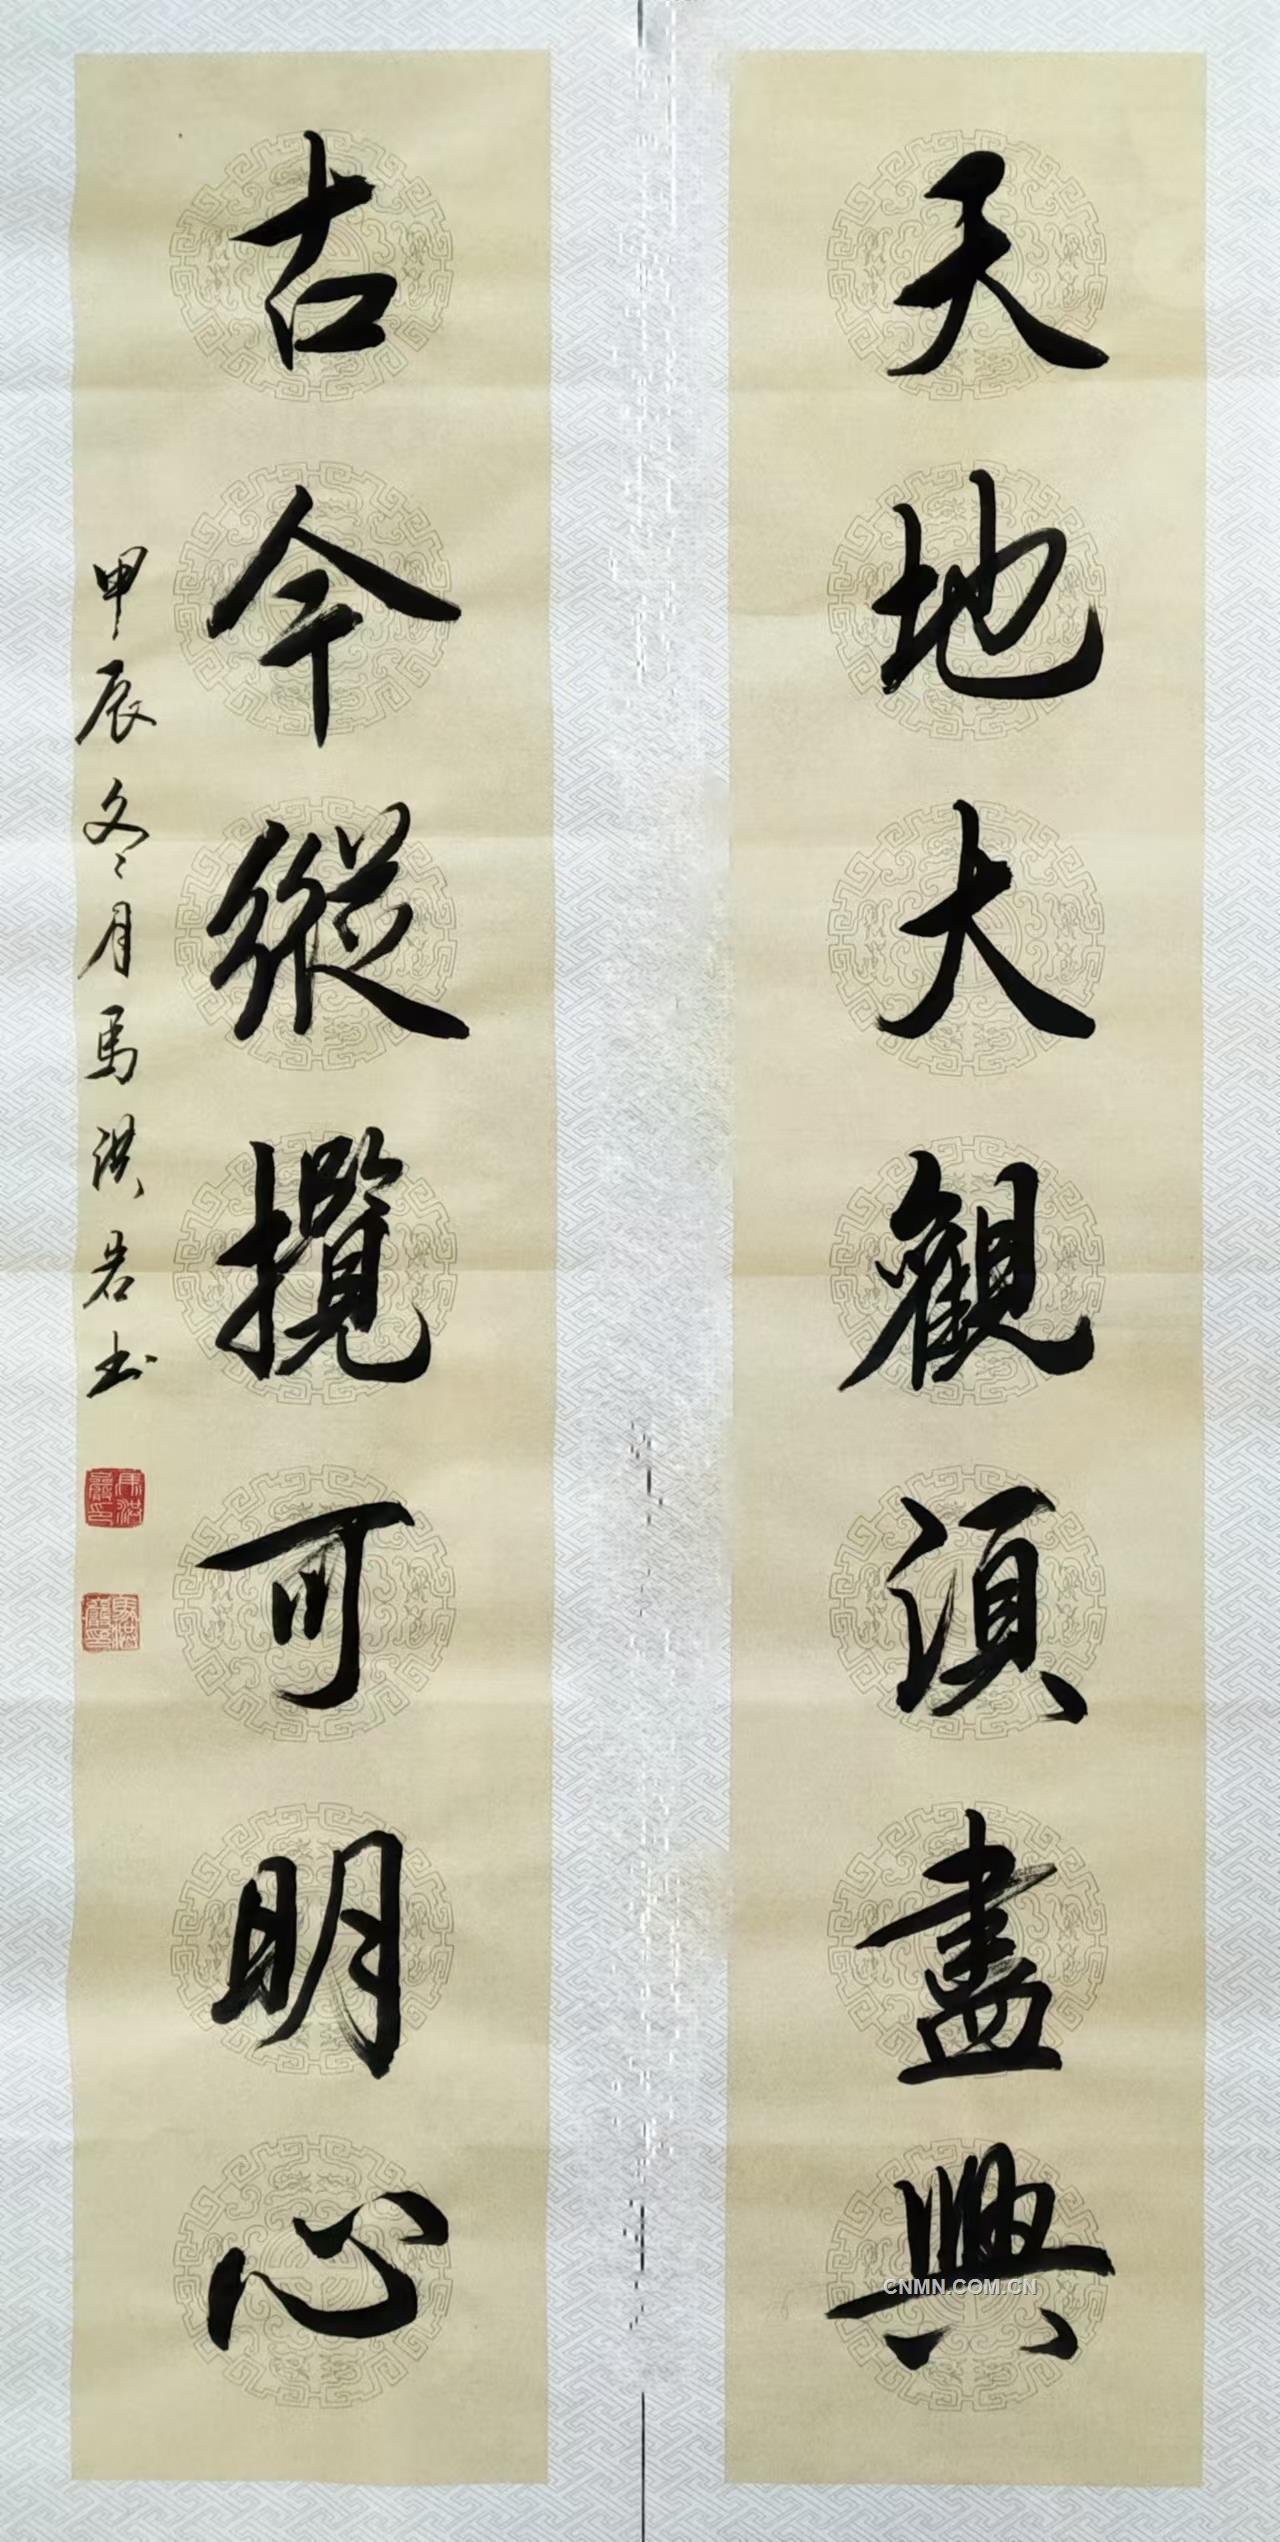 天地大觀須盡興
古今縱攬可明心
甲辰冬月馬洪岩书
CNMN.COM.CN